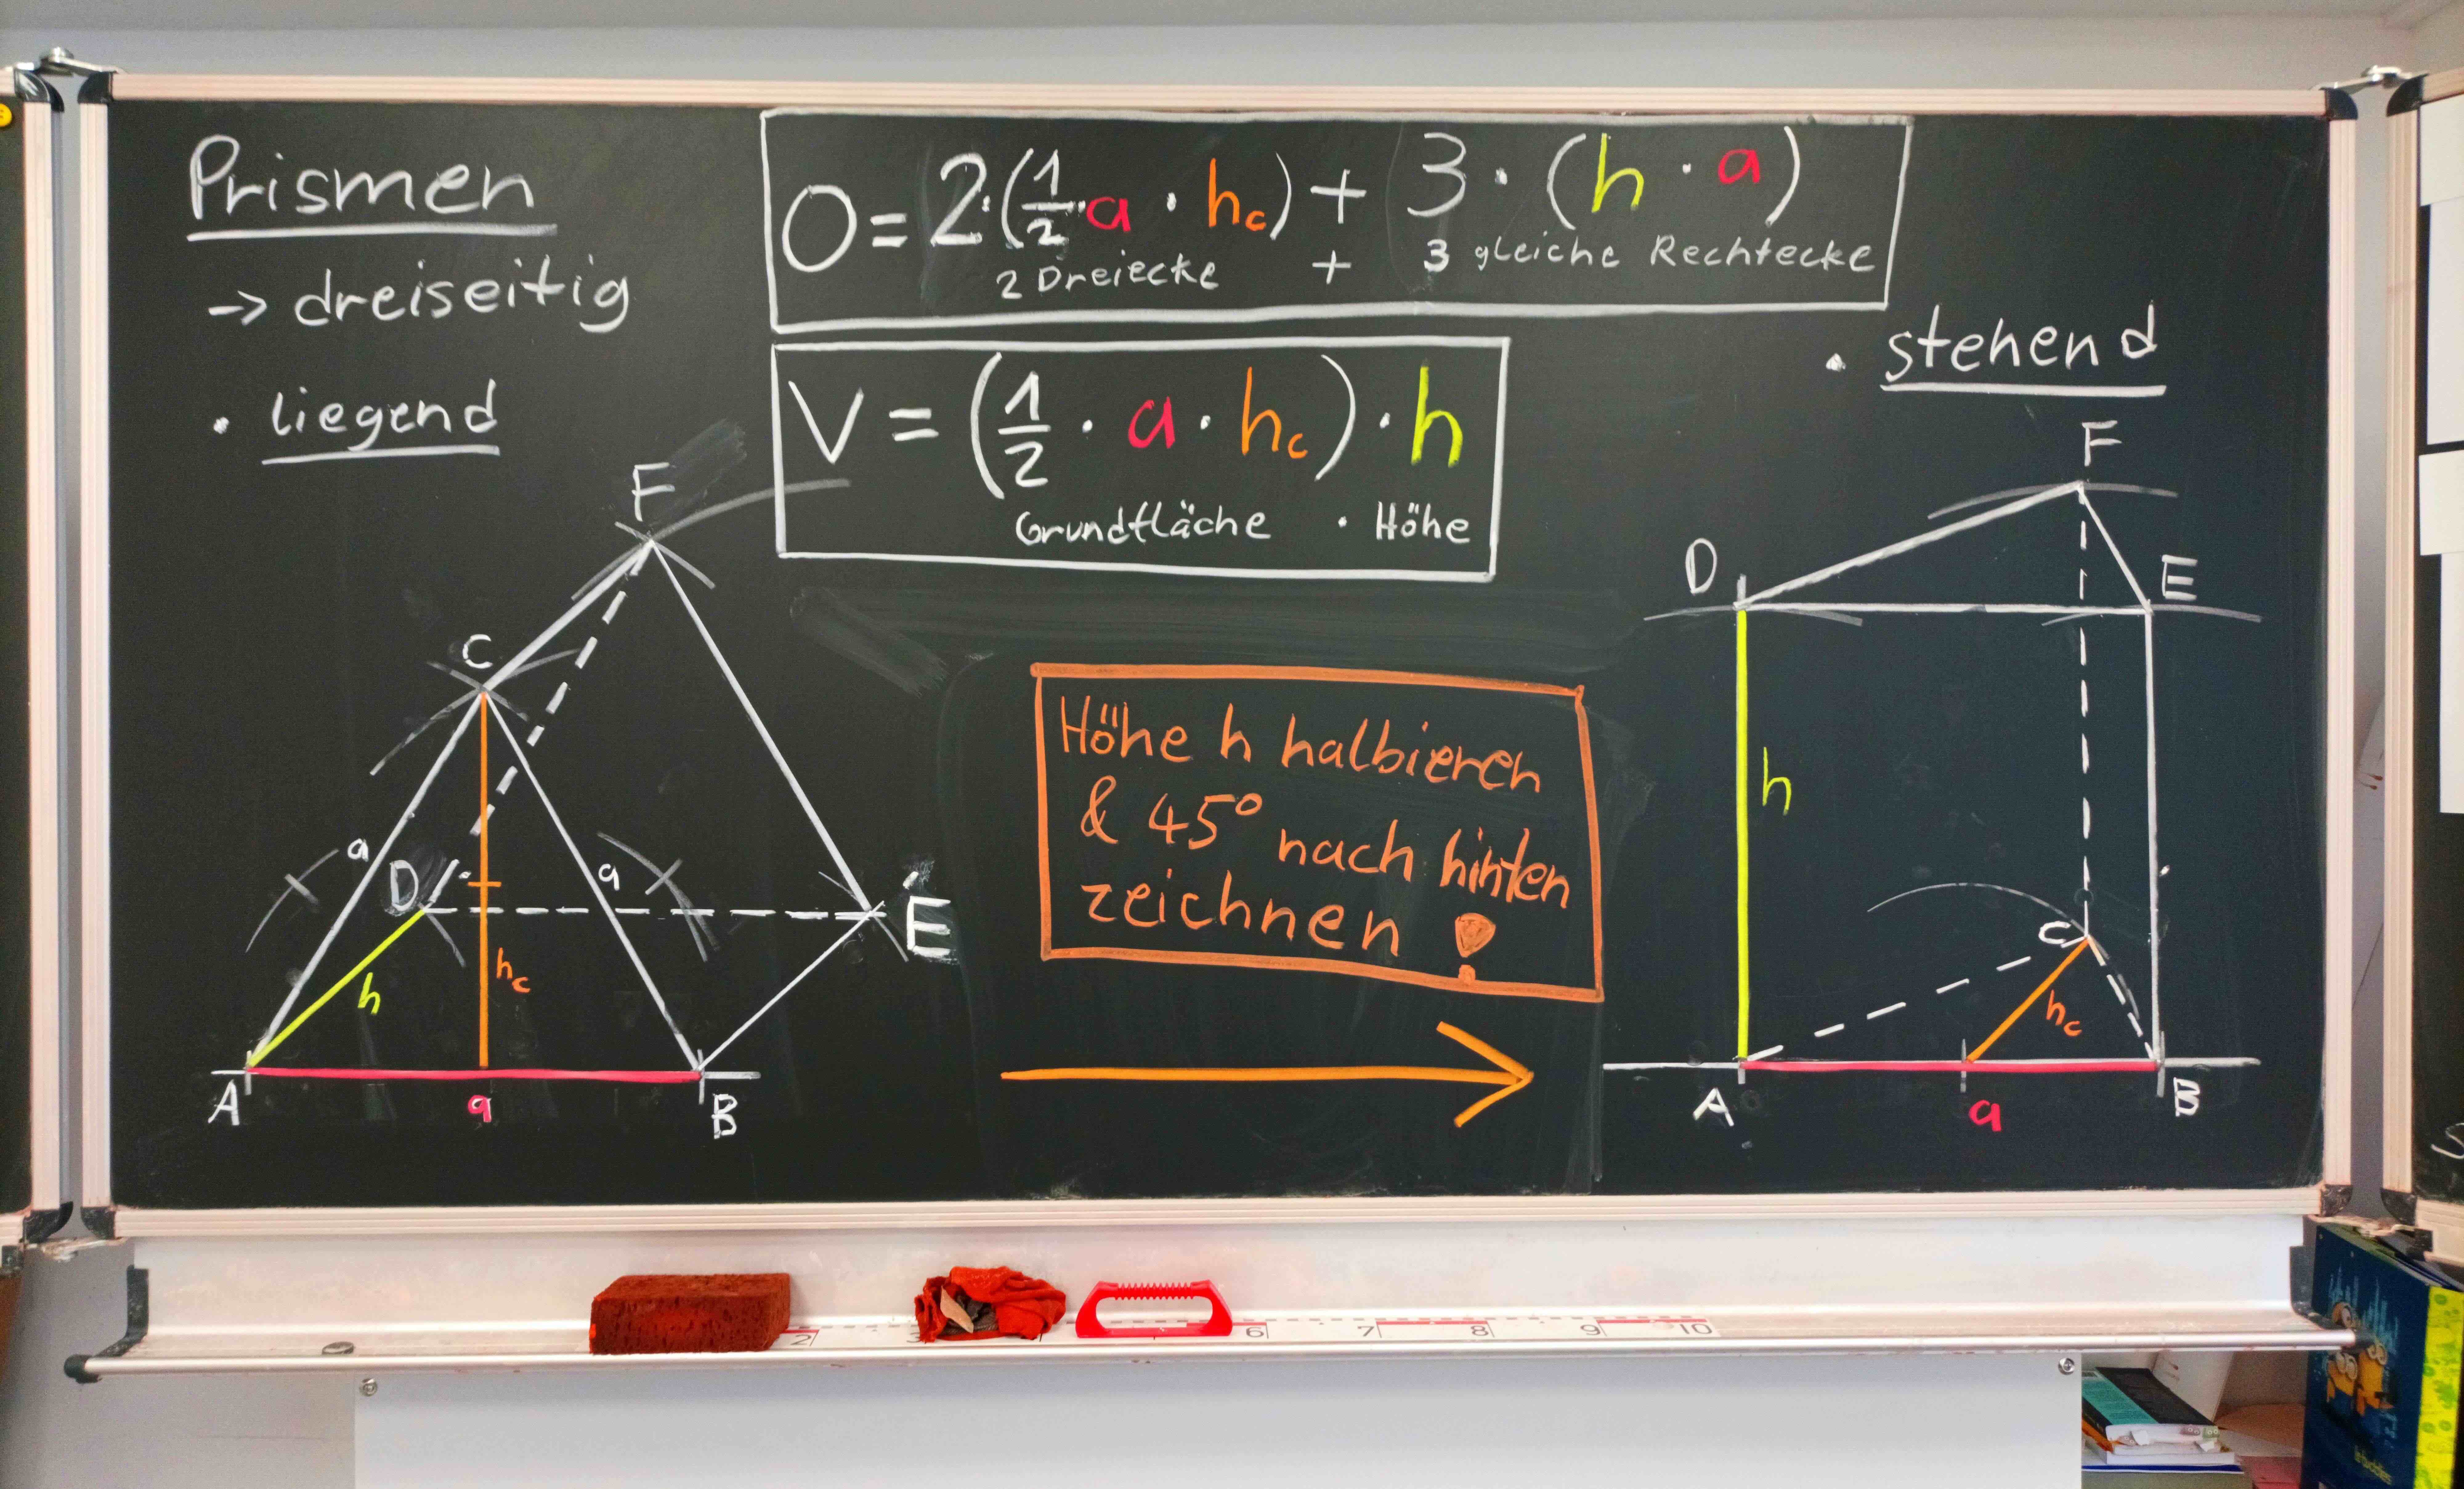 Prismen
-> dreiseitig
• liegend
O = 2·(1/2·a · hc) + 3 · (h · a)
2 Dreiecke + 3 gleiche Rechtecke
V = (1/2 · a · hc) · h
Grundfläche · Höhe
• stehend
F
C
a
a
D
E
h
hc
A
a
B
Höhe h halbieren
& 45° nach hinten
zeichnen !
F
D
E
h
C
hc
A
a
B
2
3
6
7
8
9
10